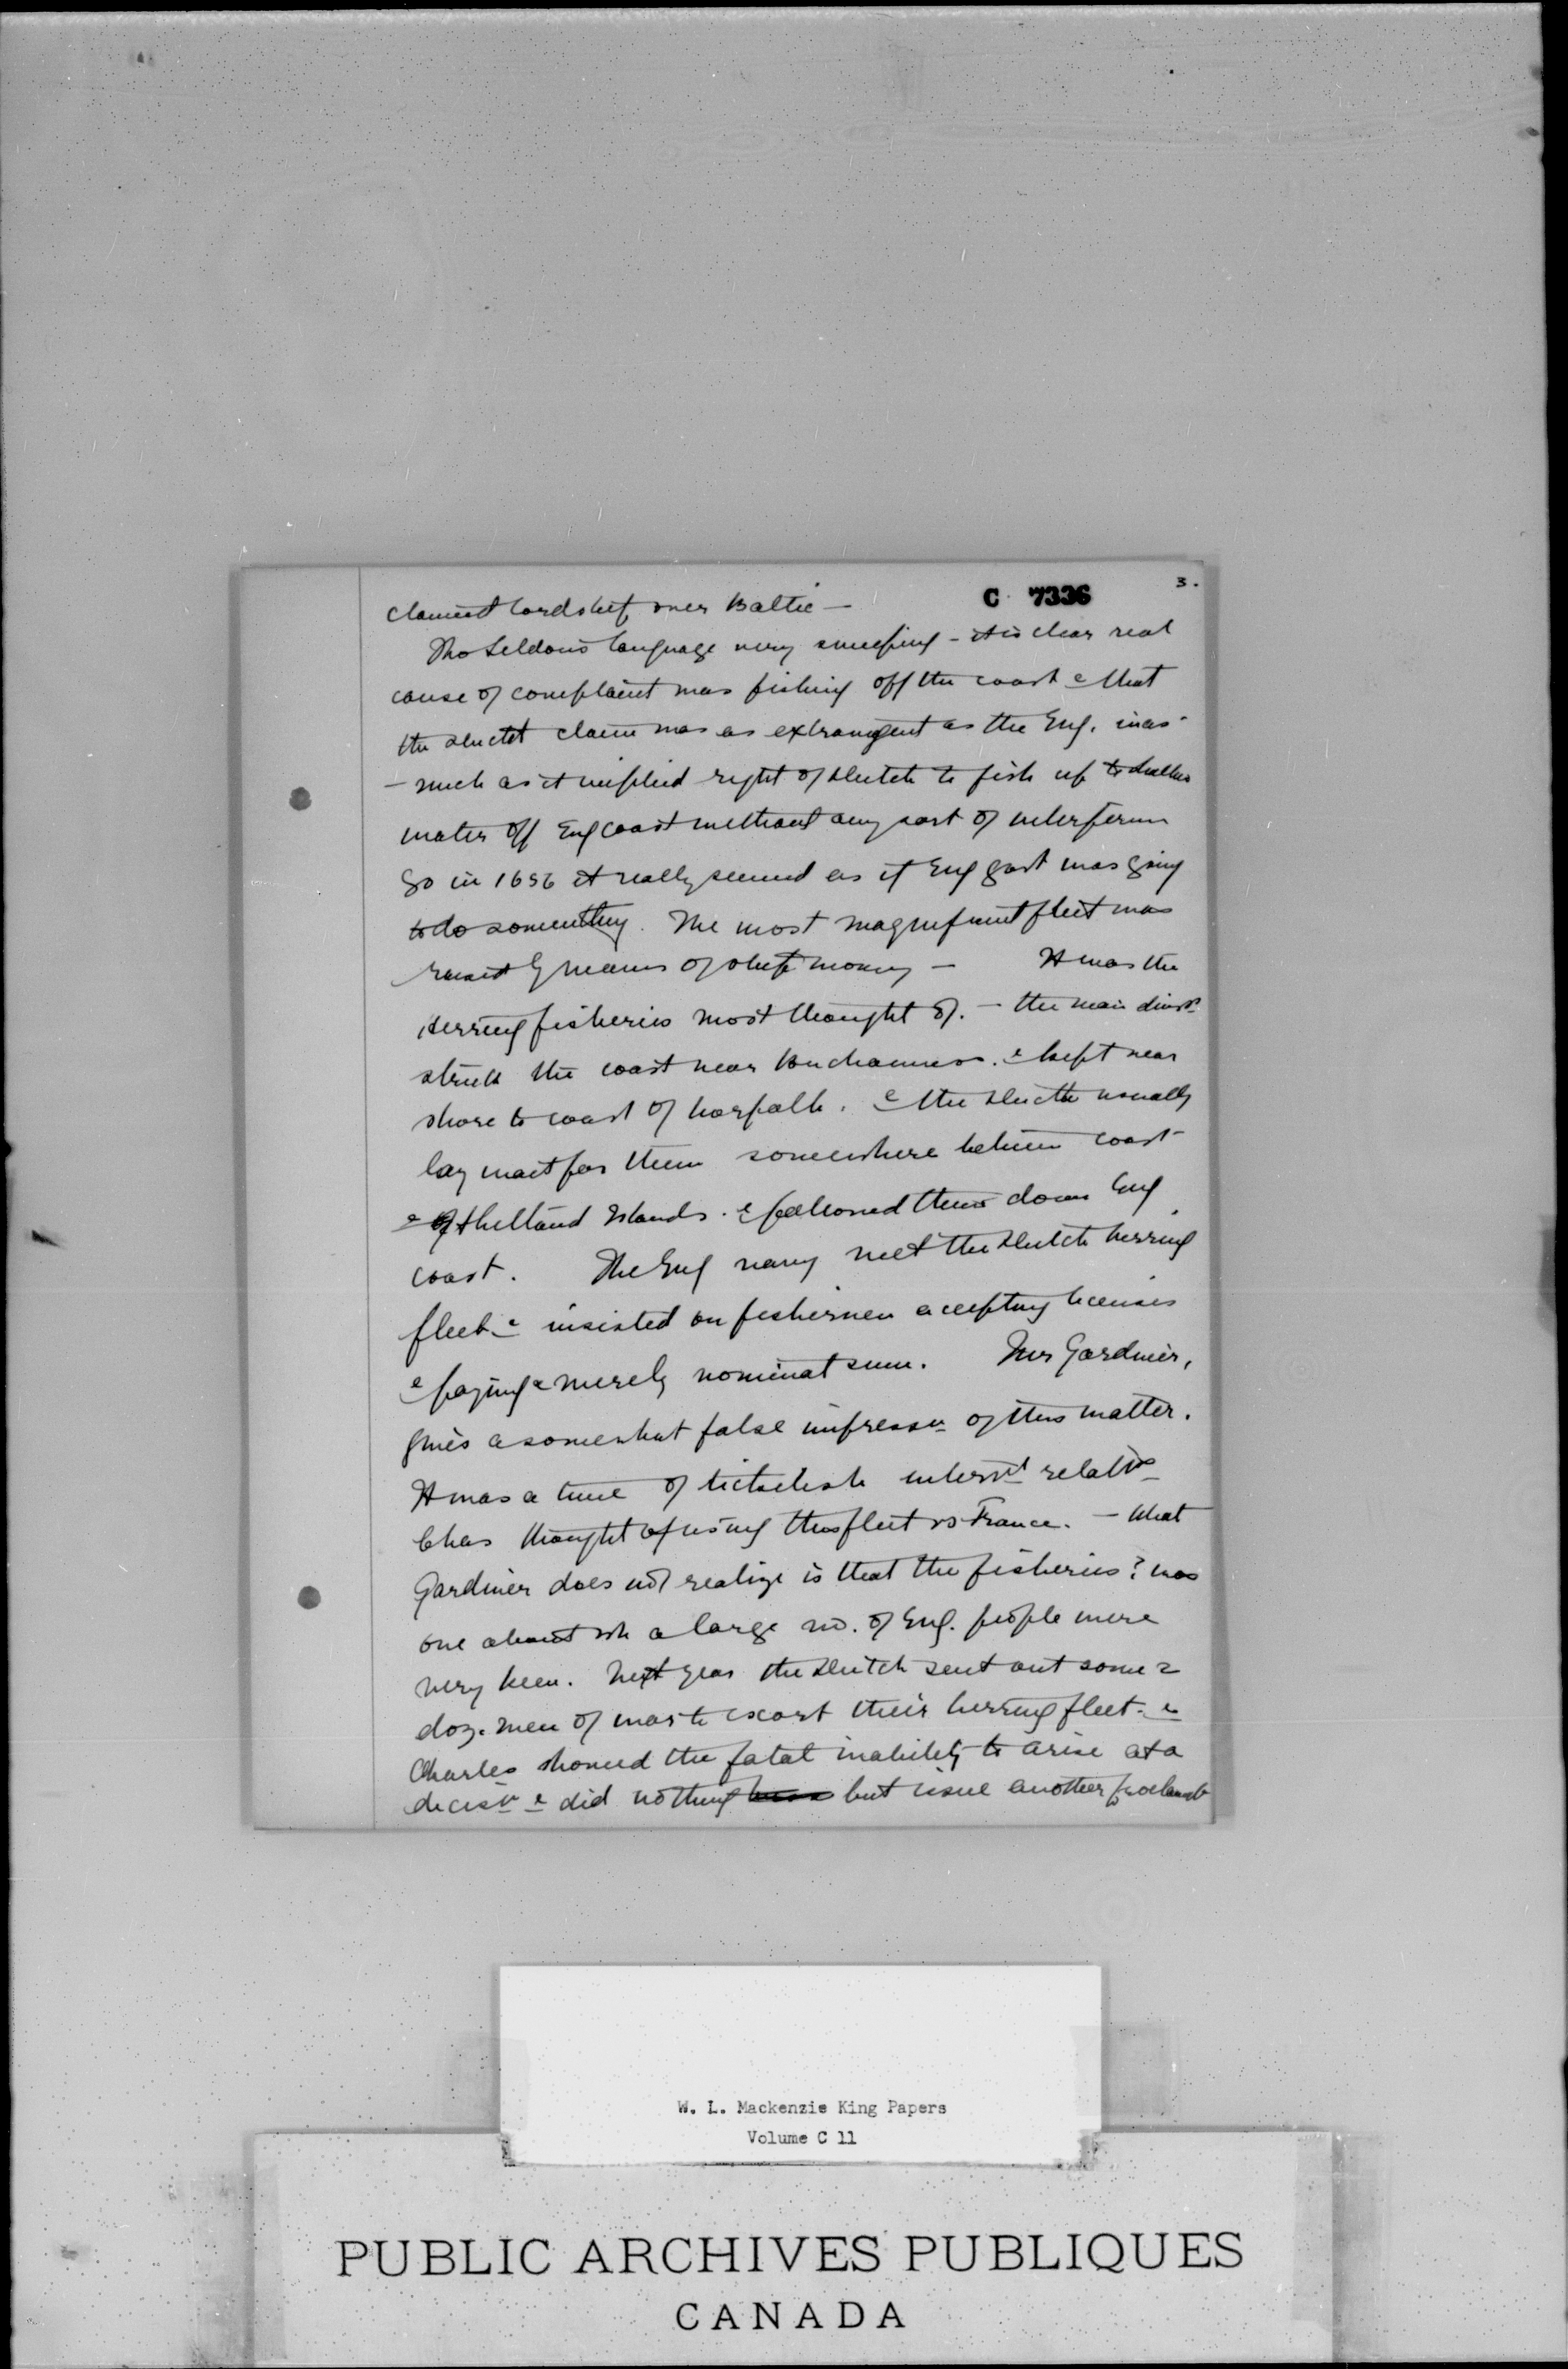 C 7336
3.
claimed lordship over Baltic —
Tho Seldon's language very sweeping - it is clear real
cause of complaint was fishing off the coast & that
the Dutch claim was as extravagent as the Eng. inas-
- much as it implied right of Dutch to fish up to
water off Eng coast without any sort of
So in 1636 it really seemed as if Eng govt was going
to do something. The most magnificent fleet was
raised by means of ship money — It was the
Herring fisheries most thought of. - the main
struck the coast near Buchanness. & kept near
shore to coast of Norfolk. & the Dutch usually
lay wait for them somewhere between coast
& of Shetland Islands. & followed them down Eng
coast. The Eng navy met the Dutch herring
fleet & insisted on fishermen accepting licenses
& paying a merely nominal sum. Mr Gardiner,
gives a somewhat false impressn of this matter.
It was a time of ticklish internl relatns
Chas thought of using this fleet vs France. - What
Gardiner does not realize is that the fisheries ? was
one about wh a large no. of Eng. people were
very keen. Next year the Dutch sent out some 2
doz. men of war to escort their herring fleet. &
Charles showed the fatal inability to arise at a
decisn & did nothing but issue another proclamatn
W. L. Mackenzie King Papers
Volume C 11
PUBLIC ARCHIVES PUBLIQUES
CANADA